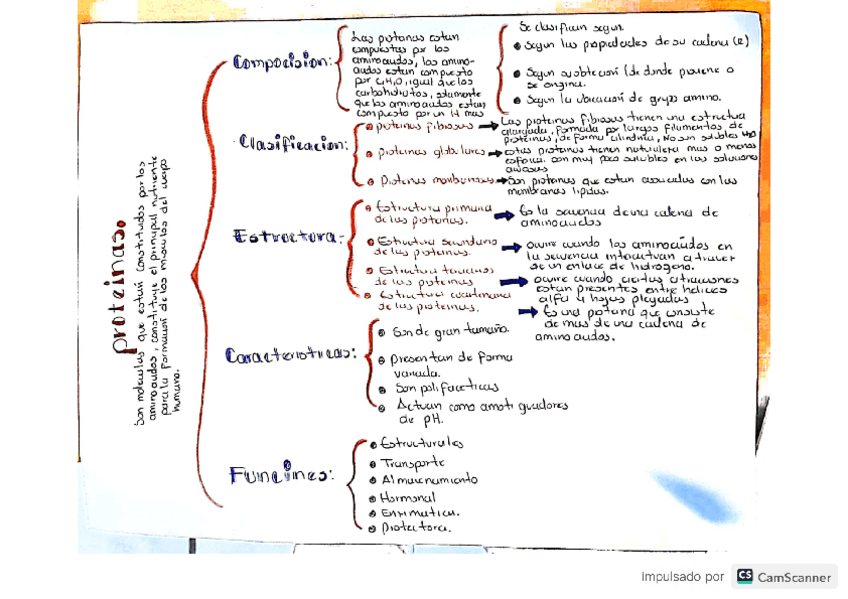 proteinas.
Son moleculas que estan constituidas por los
aminoacidos, constituye el principal nutriente
para la formacion de los musculos del cuerpo
humano.
Composicion:
Las proteinas estan
compuestas por los
aminoacidos, los amino-
acidos estan compuesto
por C,H,O, igual que los
carbohidratos, solamente
que los aminoacidos estan
compuesto por un N mas
Se clasifican segun.
Segun las propiedades de su cadena (R)
Segun su obtencion (de donde proviene o
se origina.
Segun la ubicacion de grupo amino.
Clasificacion:
proteinas fibrosas
Las proteinas fibrosas tienen una estructura
alargada, formada por largos filamentos de
proteinas, de forma cilindrica, No son solubles H2O
proteinas globulares
estas proteinas tienen naturaleza mas o menos
esferica. son muy poco solubles en las soluciones
acuosas
Proteinas membranosas
Son proteinas que estan asociadas con las
membranas lipidas.
Estructura:
Estructura primaria
de las proteinas.
Es la secuencia de una cadena de
aminoacidos
Estructura secundaria
de las proteinas.
ocurre cuando los aminoacidos en
la secuencia interactuan a traver
de un enlace de hidrogeno.
Estructura terciarias
de las proteinas
ocurre cuando ciertas atracciones
estan presentes entre helices
alfa y hojas plegadas
Estructura cuaternaria
de las proteinas.
Es una proteina que consiste
de mas de una cadena de
aminoacidos.
Caracteristicas:
Son de gran tamaño.
presentan de forma
variada.
Son polifaceticas
Actuan como amortiguadores
de pH.
Funciones:
Estructurales
Transporte
Almacenamiento
Hormonal
Enzimatica.
Protectora.
Impulsado por CS CamScanner